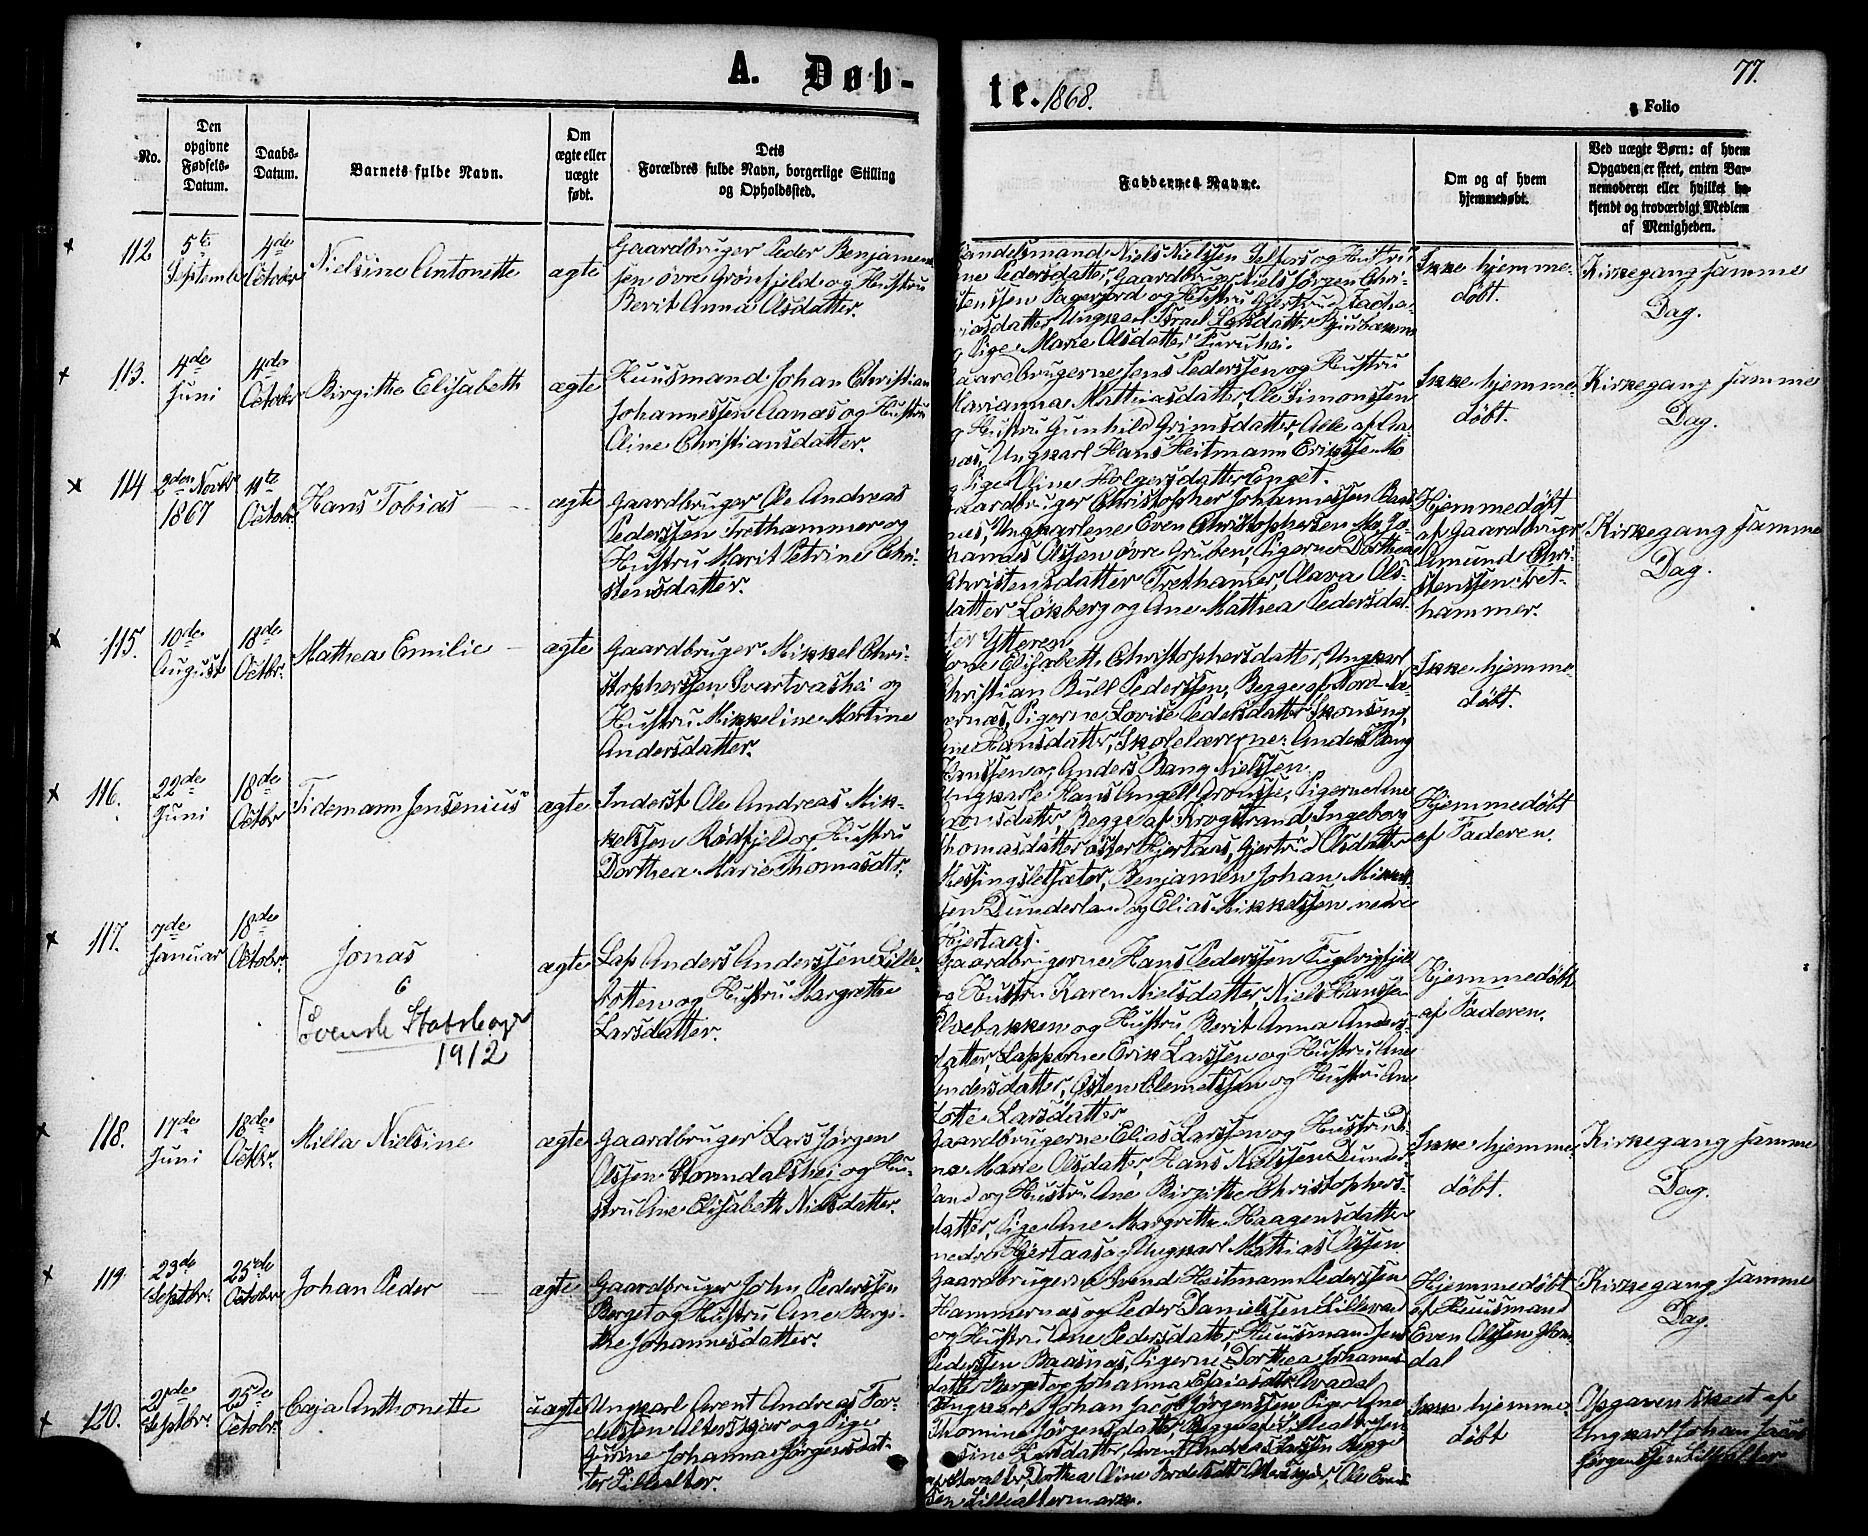 A. Døb-
te. 1868.
77.
Folio
No.
Den opgivne Fødsels-Datum.
Daabs-Datum.
Barnets fulde Navn.
Om ægte eller uægte født.
Dets Forældres fulde Navn, borgerlige Stilling og Opholdssted.
Faddernes Navne.
Om og af hvem hjemmedøbt.
Ved uægte Børn: af hvem Opgaven er skeet, enten Barnemoderen eller hvilket bekjendt og troværdigt Medlem af Menigheden.
112
5te September
4de October
Nielsine Antonette
ægte
Gaardbruger Peder Benjamen-
sen øvre Grønfjeld og Hustru
Berit Anna Olsdatter.
Handelsmand Niels Nielssen Selfors og Hustru
Ane Pedersdatter, Gaardbruger Niels Jørgen Chri-
stenssen og Hustru Gjertrud Zacha-
riasdatter, Ungkarl Israel
og Pige Marie Olsdatter Furuhei.
Ikke hjemme-
døbt.
Kirkegang samme
Dag.
113.
4de Juni
4de October
Birgitha Elisabeth
ægte
Huusmand Johan Christian
Johannessen Aanæs og Hustru
Aline Christiansdatter.
Gaardbrugerne Jens Pederssen og Hustru
Marianna Mathiasdatter, Ole Simonssen
og Hustru Gunhild Grimsdatter, Alle af Aa-
næs, Ungkarl Hans Heitmann Erikssen Mo
og Pige Aline Holgersdatter Enget.
Ikke hjemme-
døbt.
Kirkegang samme
Dag.
114
2den Novbr 1867
11te Octobr.
Hans Tobias
ægte
Gaardbruger Ole Andreas
Pederssen Trethammer og
Hustru Marit Petrine Chri-
stensdatter.
Gaardbruger Christopher Johannessen Baas-
næs, Ungkarlene Even Christophersen Mo, Jo-
hannes Olssen øvre Gruben, Pigerne Dorthea
Christensdatter Trethamer, Olava Ols-
datter Løkberg og Ane Mathea Pedersdat-
ter Ytteren.
Hjemmedøbt
af Gaardbruger
Amund Chri-
stenssen Tret-
hammer.
Kirkegang samme
Dag.
115.
10de August
18de Octbr.
Mathea Emilie
ægte
Gaardbruger Mikkel Chri-
stopherssen Svartvashei og
Hustru Mikkeline Martine
Andersdatter.
Elisabeth Christophersdatter, Ungkarl
Christian Bull Pederssen, Begge af Nord-
Pigerne Lovise Pedersdatter Skonseng,
Ane Hansdatter, Skolelærerne Anders Bang
Hanssen og Anders Bang Nielssen.
Ikke hjemme-
døbt.
116.
22de Juni
18de Octbr
Tidemann Jensenius
ægte
Inderst Ole Andreas Mik-
kelssen Rødfjeld og Hustru
Dorthea Marie Thomasdtr.
Ungkarl Hans Angell Pigerne Ane
Begge af Krogstrand, Ingeborg
Thomasdatter øster Hjertaas, Gjertrud Olsdatter
Messingsletsæter, Benjamen Johan Mikkel-
sen Dunderland og Elias Mikkelssen nedre
Hjertaas.
Hjemmedøbt
af Faderen.
117.
7de Januar
18de Octobr.
Jonas
Svensk Statsborger
1912
ægte
Lap Anders Anderssen Lille-
og Hustru Margrethe
Larsdatter.
Gaardbrugerne Hans Pederssen Fuglvigfjeld
og Hustru Karen Nielsdatter, Niels Hanssen
Elvebakken og Hustru Berit Anna Anders-
datter, Lapperne Erik Larssen og Hustru Ane
Andersdatter, Østen Clemetssen og Hustru Ane
Lotte Larsdatter
Hjemmedøbt
af Faderen.
118.
17de Juni
18de Octbr.
Milla Nielsine
ægte
Gaardbruger Lars Jørgen
Olssen Stormdalshei og Hu-
stru Ane Elisabeth Nielsdatter.
Gaardbrugerne Elias Larssen og Hustru
Marie Olsdatter, Hans Nielssen Dunder-
land og Hustru Ane Birgithe Christophers-
datter, Pige Ane Margrethe Haagensdatter
nedre Hjertaas og Ungkarl Mathias Olssen
Ikke hjemme-
døbt.
Kirkegang samme
Dag.
119
23de Septbr.
25de Octobr.
Johan Peder
ægte
Gaardbruger John Pederssen
Berget og Hustru Ane Bergi-
the Johannesdatter.
Gaardbrugerne Svend Heitmann Pederssen
Hammernæs og Peder Danielssen
og Hustru Ane Pedersdatter, Huusmand Jens
Pederssen Baasnæs, Pigerne Dorthea Johannes-
datter Berget og Johanna Esaiasdtr
Hjemmedøbt
af Huusmand
Even Olssen
dal
Kirkegang samme
Dag.
120.
21de Septbr.
25de Octobr.
Caja Anthonette
uægte
Ungkarl Arent Andreas For-
delssen Alterskjær og Pige
Gurine Johanna Jørgensdat-
ter Lillealter.
Ungkarl Johan Jacob Jørgenssen, Pigen Ane
Thomine Jørgensdatter, Begge af
Larsdatter, Arent Andreas Larssen Begge
Dorthea Aline Fordelsdatter Alterskjær, Ole
Lillealtermark.
Ikke hjemme-
døbt
Opgaven skeet af
Ungkarl Johan Jacob
Jørgenssen Lillealter